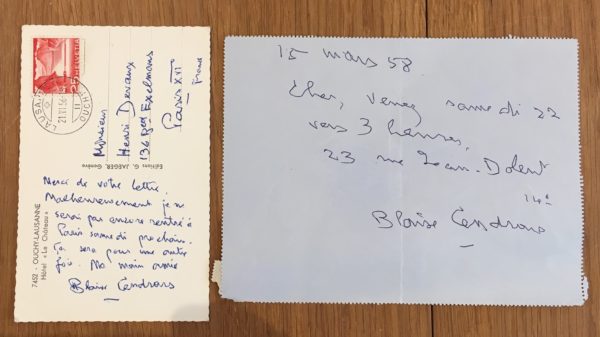 HELVETIA
LAUSANNE
OUCHY
21.11.56
Monsieur
Henri Devaux
136 Bd Exelmans
Paris XVI
France
Editions G. JAEGER, Genève
Merci de votre lettre.
Malheureusement je ne
serai pas encore rentré à
Paris samedi prochain.
Ça sera pour une autre
fois. Ma main amie
Blaise Cendrars
7452 - OUCHY-LAUSANNE
Hôtel « Le Château »
15 mars 58
Cher, venez samedi 22
vers 3 heures,
23 rue Jean-Dolent
14e
Blaise Cendrars